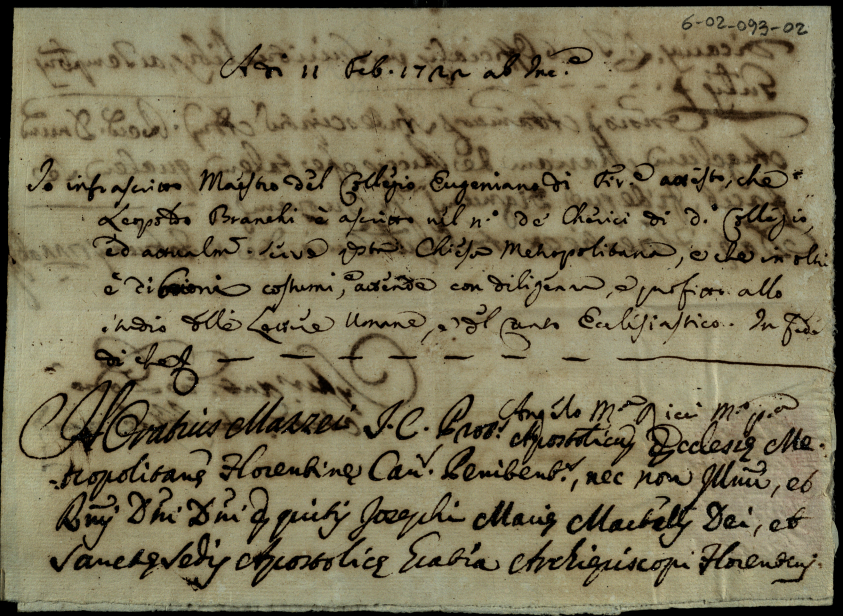 6-02-093-02
Adi 11 Feb. 1722 ab Inc.e
Io infrascritto Maestro del Collegio Eugeniano di Fir.e attesto, che
Leopoldo Branchi è ascritto nel n.o de Cherici di d.o Collegio,
ed actualm.e serve Chiesa Metropolitana, e che in oltre
è di buoni costumi, e attende con diligenza, e profitto allo
studio delle Lettere Umane, e del canto Ecclesiastico. In fede
di che
Angelo M.a Ricci M.o p.a
Horatius Mazzei J. C. Prot. Apostolicus Ecclesię Me-
tropolitanę Florentinę Can. Penitent., nec non Illmi, et
Rmi Dni Dni Equitis Josephi Marię Martelli Dei, et
Sanctę Sedis Apostolicę Gratia Archiepiscopi Florentini